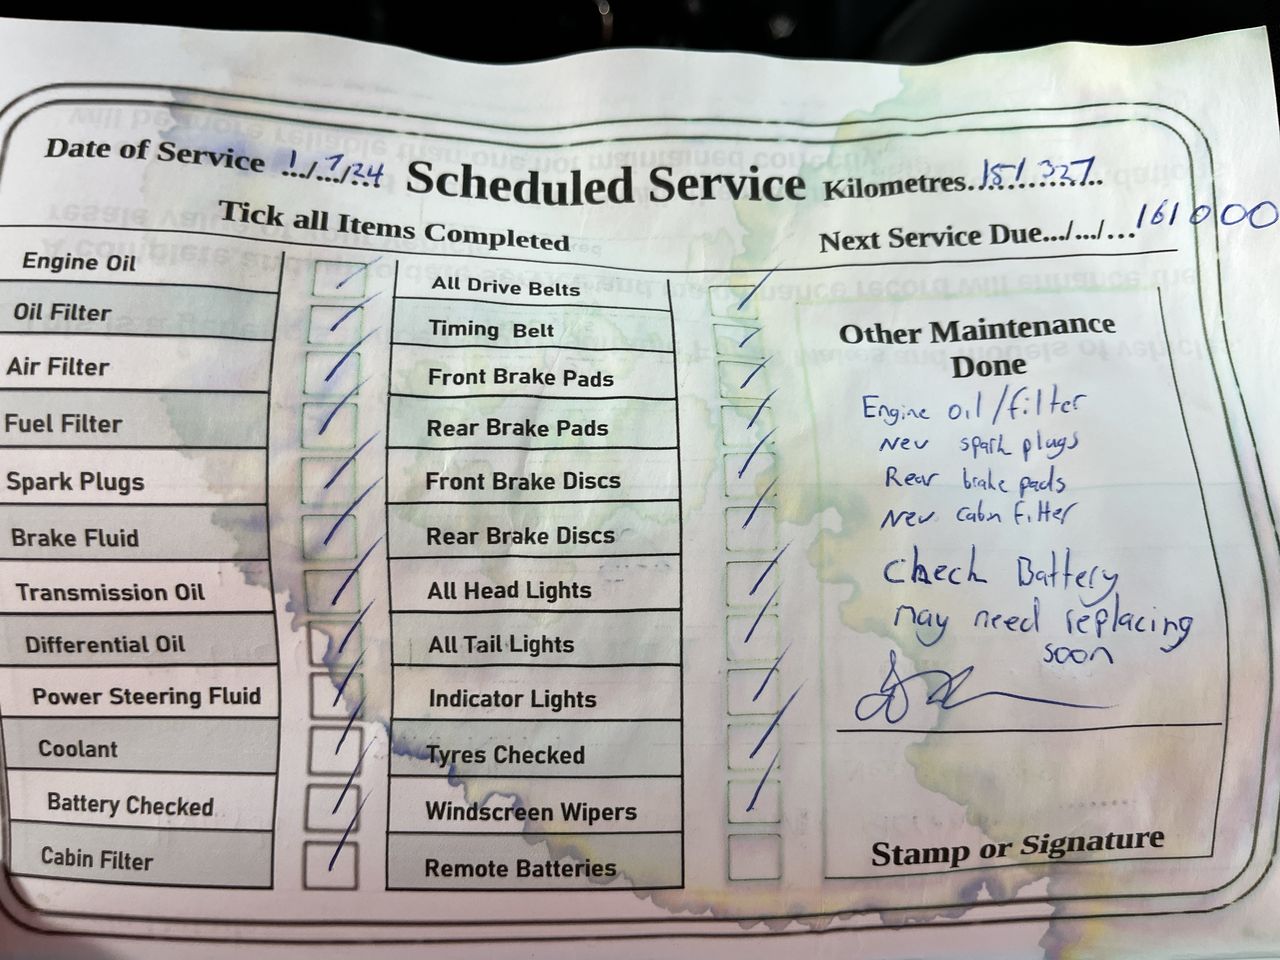 Date of Service 1/7/24 Scheduled Service Kilometres 151,327
Tick all Items Completed
Next Service Due.../.../... 161000
Engine Oil
Oil Filter
Air Filter
Fuel Filter
Spark Plugs
Brake Fluid
Transmission Oil
Differential Oil
Power Steering Fluid
Coolant
Battery Checked
Cabin Filter
All Drive Belts
Timing Belt
Front Brake Pads
Rear Brake Pads
Front Brake Discs
Rear Brake Discs
All Head Lights
All Tail Lights
Indicator Lights
Tyres Checked
Windscreen Wipers
Remote Batteries
Other Maintenance
Done
Engine oil/filter
New spark plugs
Rear brake pads
New cabin filter
Check Battery
may need replacing
soon
Stamp or Signature